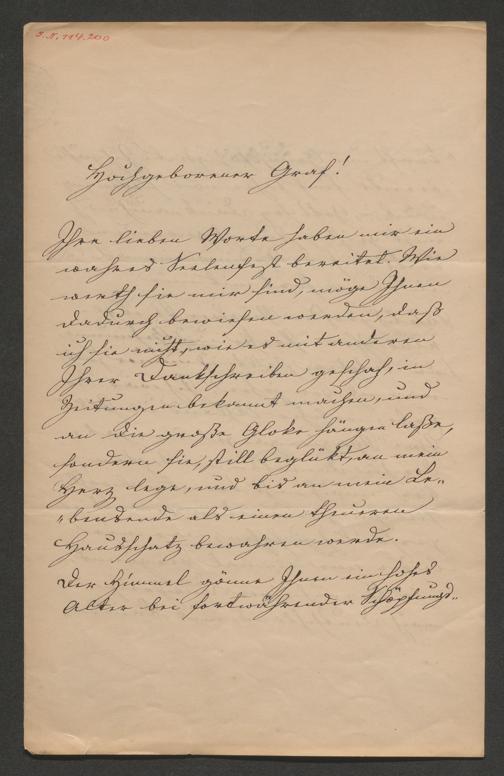 J.N. 114.200
Hochgeborener Graf!
Ihre lieben Worte haben mir ein
wahres Seelenfest bereitet. Wie
werth sie mir sind, möge Ihnen
dadurch bewiesen werden, daß
ich sie nicht, wie es mit anderen
Ihrer Dankschreiben geschah, in
Zeitungen bekannt machen, und
an die große Gloke hängen laße,
sondern sie, still beglükt, an mein
Herz lege, und bis an mein Le„
„bensende als einen theueren
Hausschatz bewahren werde.
Der Himmel gönne Ihnen ein hohes
Alter bei fortwährender Schöpfungs„